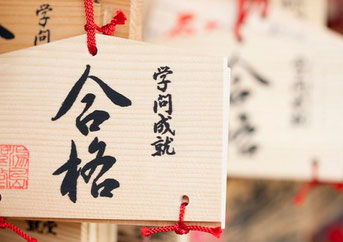 学問成就
合格
学問成就
合格